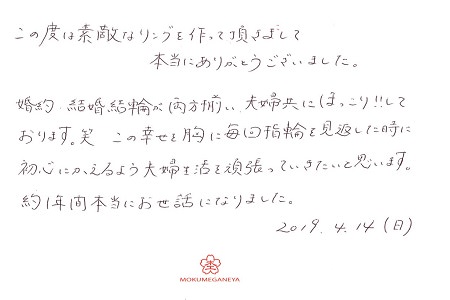 この度は素敵なリングを作って頂きまして
本当にありがとうございました。
婚約・結婚指輪が両方揃い、夫婦共にほっこり!!して
おります。笑 この幸せを胸に毎回指輪を見返した時に
初心にかえるよう夫婦生活を頑張っていきたいと思います。
約1年間本当にお世話になりました。
2019.4.14(日)
MOKUMEGANEYA